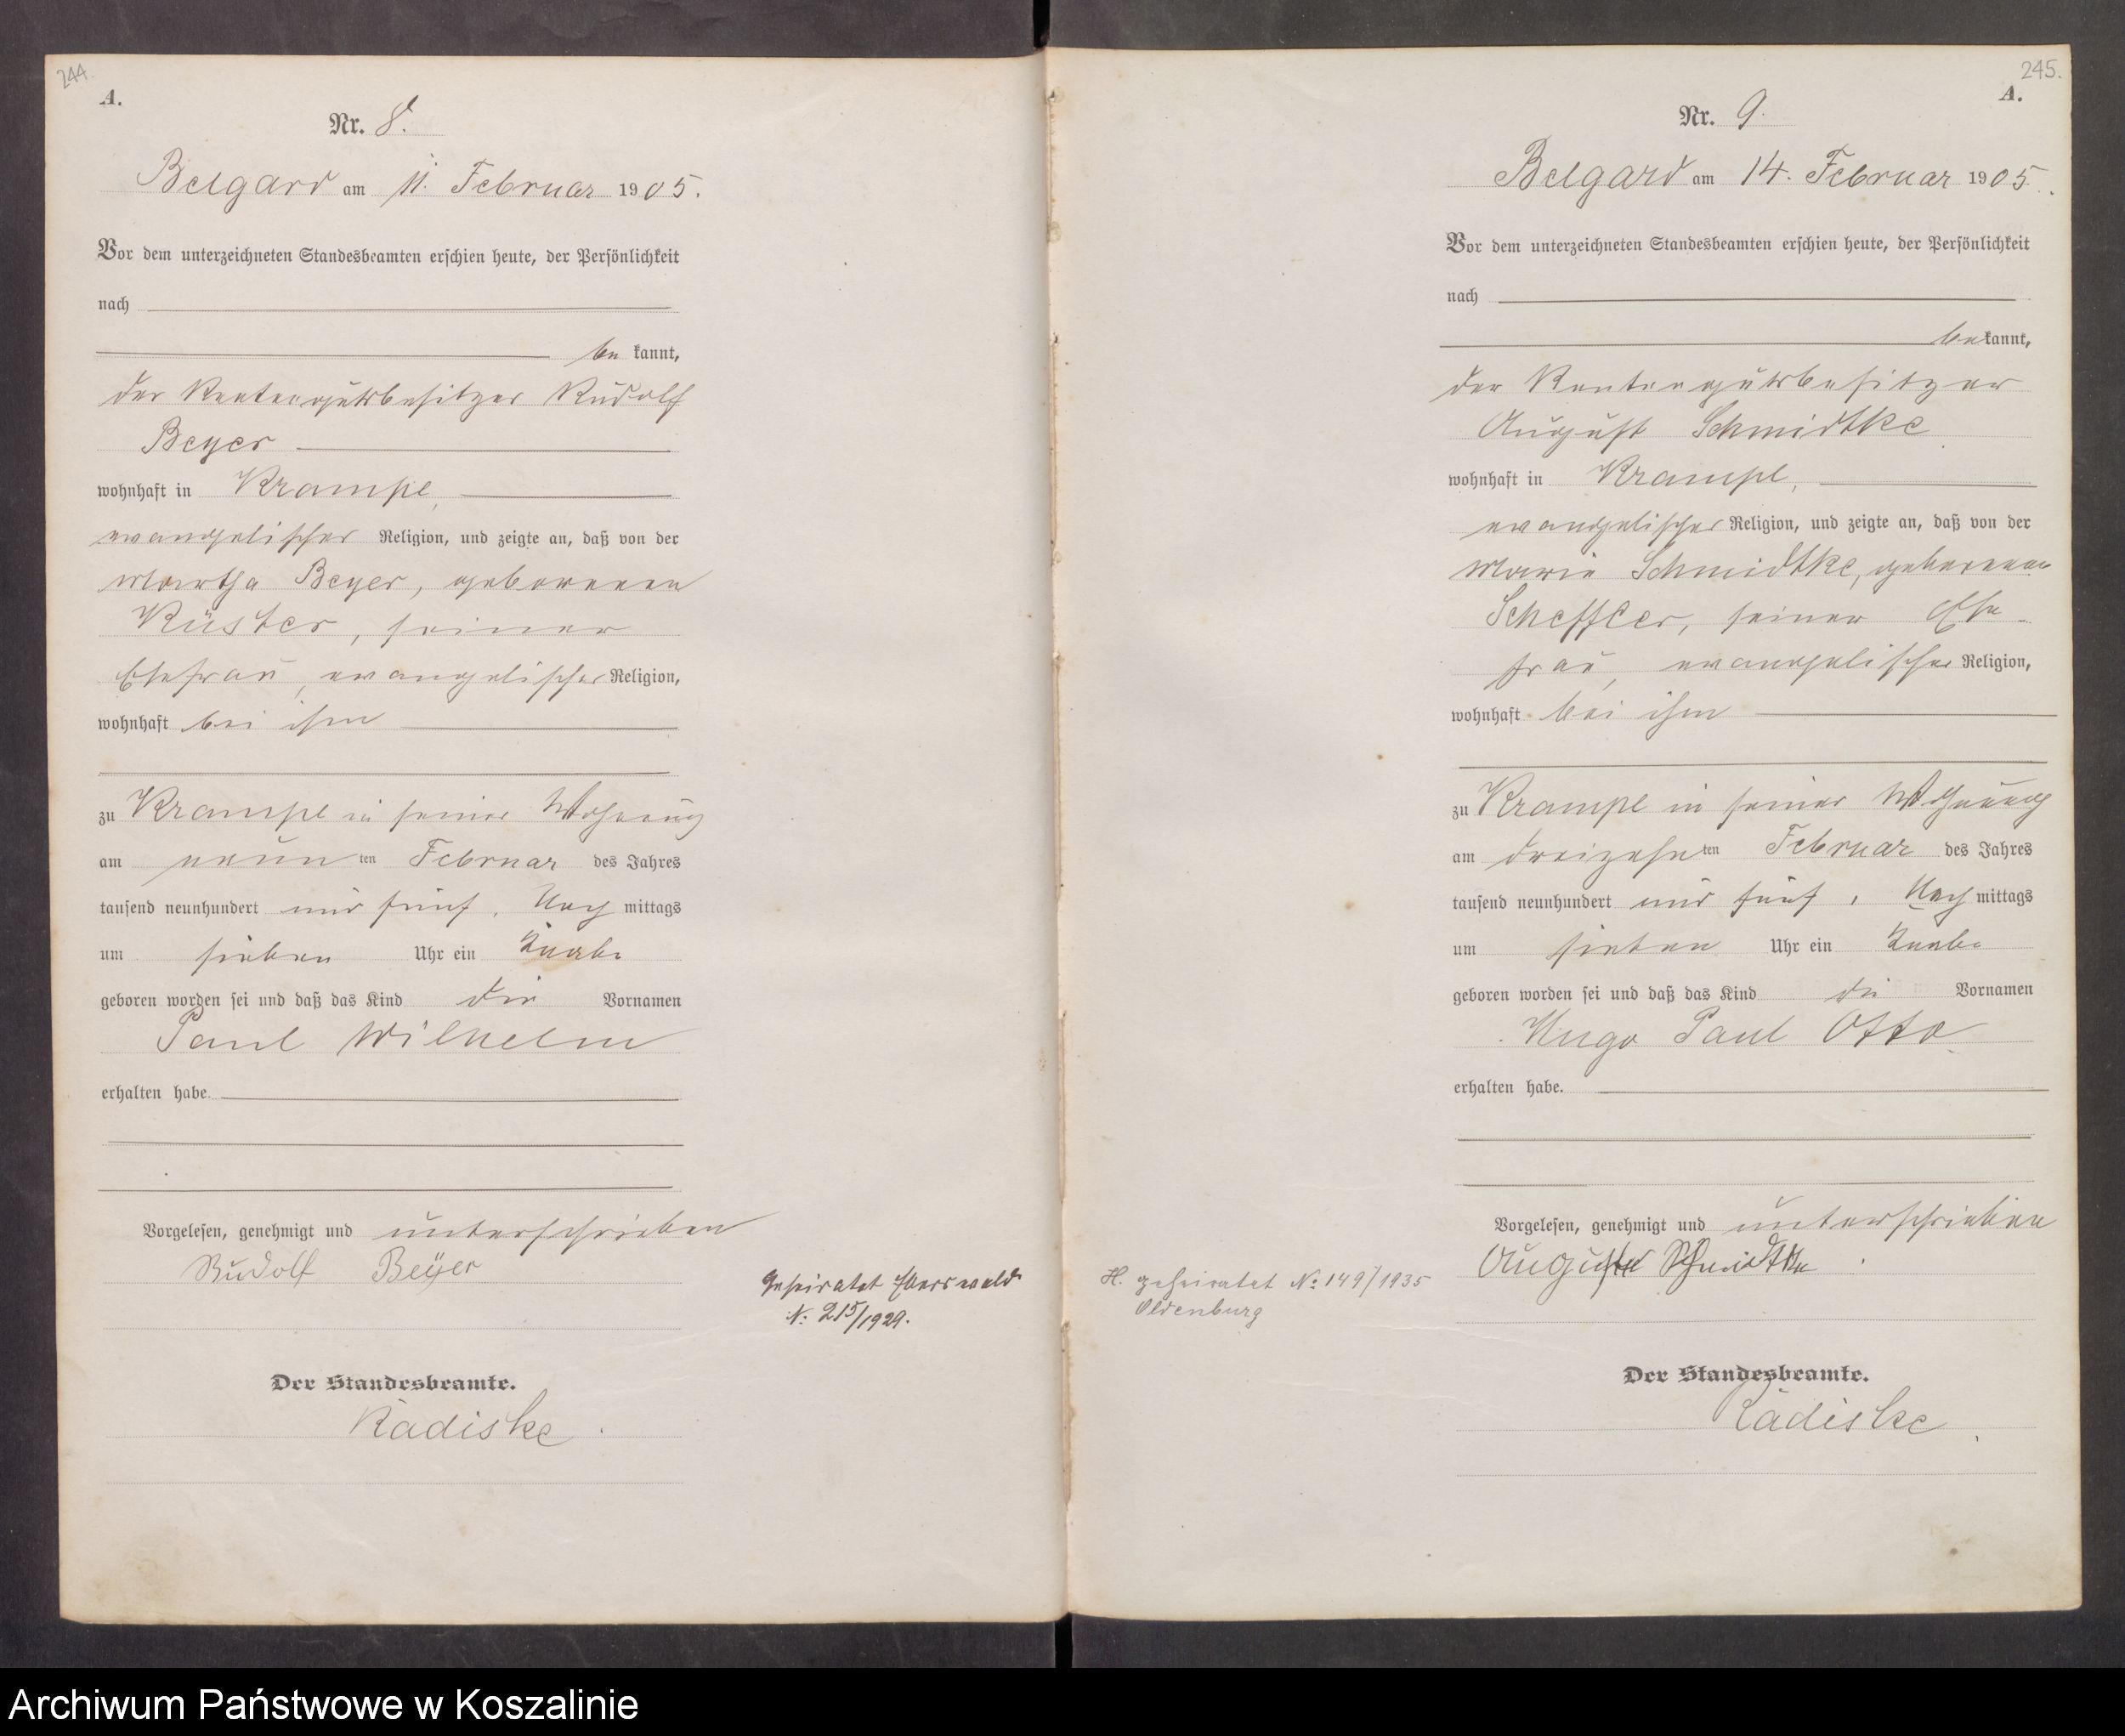 244.
A.
Nr. 8.
Belgard am 11. Februar 1905.
Vor dem unterzeichneten Standesbeamten erschien heute, der Persönlichkeit
nach
be kannt,
der Rentengutsbesitzer Rudolf
Beyer
wohnhaft in Krampe,
evangelischer Religion, und zeigte an, daß von der
Martha Beyer, geborenen
Küster, seiner
Ehefrau, evangelischer Religion,
wohnhaft bei ihm
zu Krampe in seiner Wohnung
am neun ten Februar des Jahres
tausend neunhundert und fünf, Nach mittags
um sieben Uhr ein Knabe
geboren worden sei und daß das Kind die Vornamen
Paul Wilhelm
erhalten habe.
Vorgelesen, genehmigt und unterschrieben
Rudolf Beyer
Geheiratet Eberswalde
N: 215/1929.
Der Standesbeamte.
Radiske.
245.
A.
Nr. 9.
Belgard am 14. Februar 1905.
Vor dem unterzeichneten Standesbeamten erschien heute, der Persönlichkeit
nach
be kannt,
der Rentengutsbesitzer
August Schmidtke
wohnhaft in Krampe,
evangelischer Religion, und zeigte an, daß von der
Marie Schmidtke, geborenen
Scheffler, seiner Ehe-
frau, evangelischer Religion,
wohnhaft bei ihm
zu Krampe in seiner Wohnung
am dreizehn ten Februar des Jahres
tausend neunhundert und fünf, Nach mittags
um sieben Uhr ein Knabe
geboren worden sei und daß das Kind die Vornamen
Hugo Paul Otto
erhalten habe.
Vorgelesen, genehmigt und unterschrieben
August Schmidtke
H. geheiratet No 149/1935
Oldenburg
Der Standesbeamte.
Radiske.
Archiwum Państwowe w Koszalinie